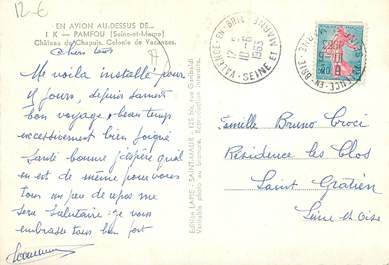 12-€
EN AVION AU-DESSUS DE...
1 K — PAMFOU (Seine-et-Marne)
Château du Chapuis. Colonie de Vacances.
Chers tous
Me voila installé pour
15 jours, depuis samedi
bon voyage & beau temps
excessivement bien soigné
Santé bonne j'espère qu'il
en est de même pour vous
tous un peu de repos me
sera salutaire. je vous
embrasse tous bien fort
Edition LAPIE - SAINT-MAUR - 125 bis, rue Garibaldi
Véritable photo au bromure. Reproduction interdite.
VALENCE-EN-BRIE
SEINE ET MARNE
1963
Famille Bruno Croci
Résidence les Clos
Saint Gratien
Seine et Oise